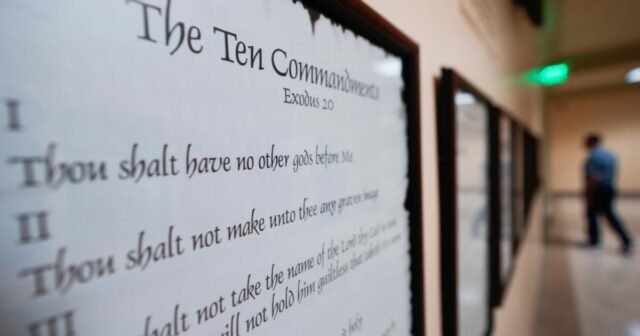 The Ten Commandments
Exodus 20
I
Thou shalt have no other gods before Me
II
Thou shalt not make unto thee any graven image
III
shalt not take the name of the Lord thy God in vain
will not hold him guiltless that
holy